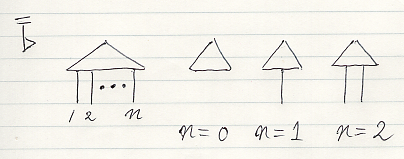 1 2 ... n
n = 0 n = 1 n = 2